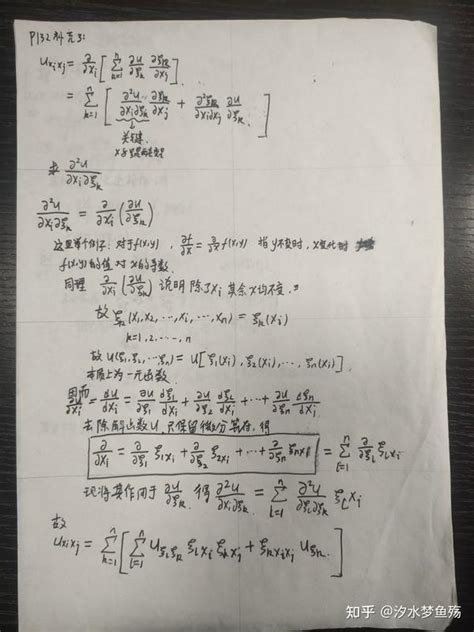 P132补充3:
u_{x_i x_j} = ∂/∂x_i [ Σ_{k=1}^{n} ∂u/∂ξ_k ∂ξ_k/∂x_j ]
= Σ_{k=1}^{n} [ ∂²u/∂x_i∂ξ_k ∂ξ_k/∂x_j + ∂²ξ_k/∂x_i∂x_j ∂u/∂ξ_k ]
关键
求 ∂²u/∂x_i∂ξ_k
∂²u/∂x_i∂ξ_k = ∂/∂x_i (∂u/∂ξ_k)
这里举个例子: 对于f(x,y), ∂f/∂x = ∂/∂x f(x,y) 指y不变时, x变化时
f(x,y)的值对x的导数.
同理 ∂/∂x_i (∂u/∂ξ_k) 说明除了x_i 其余x均不变.
故 ξ_k(x_1, x_2, ..., x_i, ..., x_n) = ξ_k(x_i)
k=1,2,...,n
故 u(ξ_1, ξ_2, ... ξ_n) = u[ξ_1(x_i), ξ_2(x_i), ..., ξ_n(x_i)].
本质上为一元函数.
因而
∂u/∂x_i = du/dx_i = ∂u/∂ξ_1 dξ_1/dx_i + ∂u/∂ξ_2 dξ_2/dx_i + ... + ∂u/∂ξ_n dξ_n/dx_i
去除解函数u, 只保留微分算符, 得
∂/∂x_i = ∂/∂ξ_1 ξ_{1x_i} + ∂/∂ξ_2 ξ_{2x_i} + ... + ∂/∂ξ_n ξ_{nx_i} = Σ_{l=1}^{n} ∂/∂ξ_l ξ_{lx_i}
现将其作用于 ∂u/∂ξ_k, 得 ∂²u/∂x_i∂ξ_k = Σ_{l=1}^{n} ∂²u/∂ξ_l∂ξ_k ξ_{lx_i}
故
u_{x_i x_j} = Σ_{k=1}^{n} [ Σ_{l=1}^{n} u_{ξ_l ξ_k} ξ_{lx_i} ξ_{kx_j} + ξ_{kx_i x_j} u_{ξ_k} ]
知乎 @汐水梦鱼殇